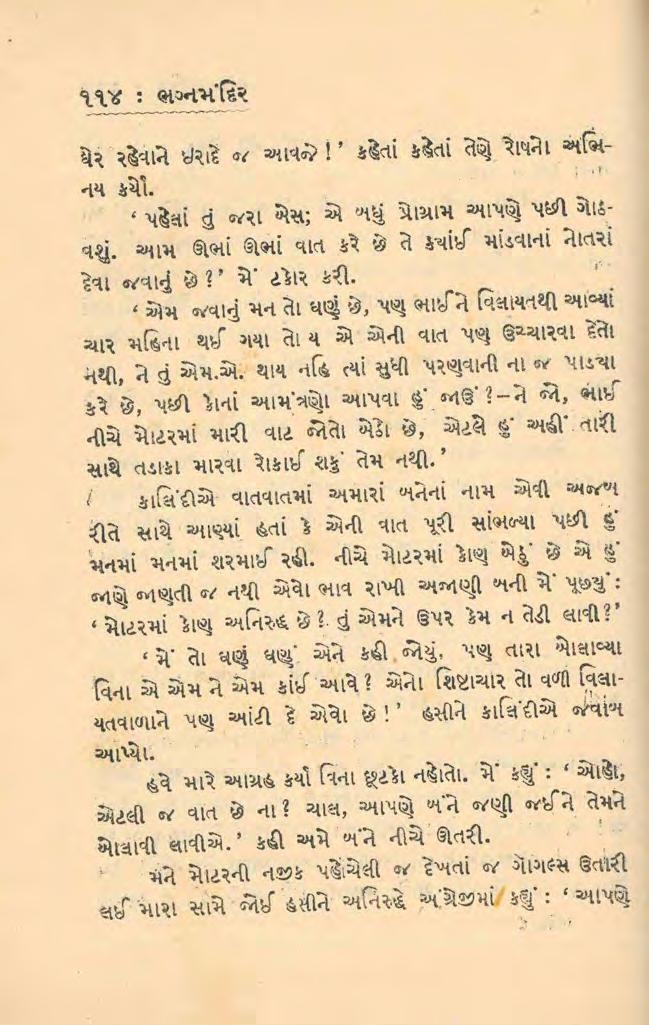 ૧૧૪ : ભગ્નમંદિર
ઘેર રહેવાને ઇરાદે જ આવજે !’ કહેતાં કહેતાં તેણે રોષનો અભિ-
નય કર્યો.
‘ પહેલાં તું જરા બેસ; એ બધું પ્રોગ્રામ આપણે પછી ગોઠ-
વશું. આમ ઊભાં ઊભાં વાત કરે છે તે ક્યાંઈ માંડવાનાં નોતરાં
દેવા જવાનું છે ?’ મેં ટકોર કરી.
‘ એમ જવાનું મન તો ઘણું છે, પણ ભાઈને વિલાયતથી આવ્યાં
ચાર મહિના થઈ ગયા તો ય એ એની વાત પણ ઉચ્ચારવા દેતો
નથી, ને તું એમ.એ. થાય નહિ ત્યાં સુધી પરણવાની ના જ પાડ્યા
કરે છે, પછી કોનાં આમંત્રણો આપવા હું જાઉં ?–ને જો, ભાઈ
નીચે મોટરમાં મારી વાટ જોતો બેઠો છે, એટલે હું અહીં તારી
સાથે તડાકા મારવા રોકાઈ શકું તેમ નથી.’
કાલિંદીએ વાતવાતમાં અમારાં બનેનાં નામ એવી અજબ
રીતે સાથે આણ્યાં હતાં કે એની વાત પૂરી સાંભળ્યા પછી હું
મનમાં મનમાં શરમાઈ રહી. નીચે મોટરમાં કોણ બેઠું છે એ હું
જાણે જાણતી જ નથી એવો ભાવ રાખી અજાણી બની મેં પૂછ્યું :
‘ મોટરમાં કોણ અનિરુદ્ધ છે ? તું એમને ઉપર કેમ ન તેડી લાવી ?’
‘ મેં તો ઘણું ઘણું એને કહી જોયું, પણ તારા બોલાવ્યા
વિના એ એમ ને એમ કાંઈ આવે ? એનો શિષ્ટાચાર તો વળી વિલા-
યતવાળાને પણ આંટી દે એવો છે !’ હસીને કાલિંદીએ જવાબ
આપ્યો.
હવે મારે આગ્રહ કર્યા વિના છૂટકો નહોતો. મેં કહ્યું : ‘ ઓહો,
એટલી જ વાત છે ના ? ચાલ, આપણે બંને જણી જઈને તેમને
બોલાવી લાવીએ.’ કહી અમે બંને નીચે ઊતરી.
મને મોટરની નજીક પહોંચેલી જ દેખતાં જ ગોગલ્સ ઉતારી
લઈ મારા સામે જોઈ હસીને અનિરુદ્ધે અંગ્રેજીમાં કહ્યું : ‘ આપણે